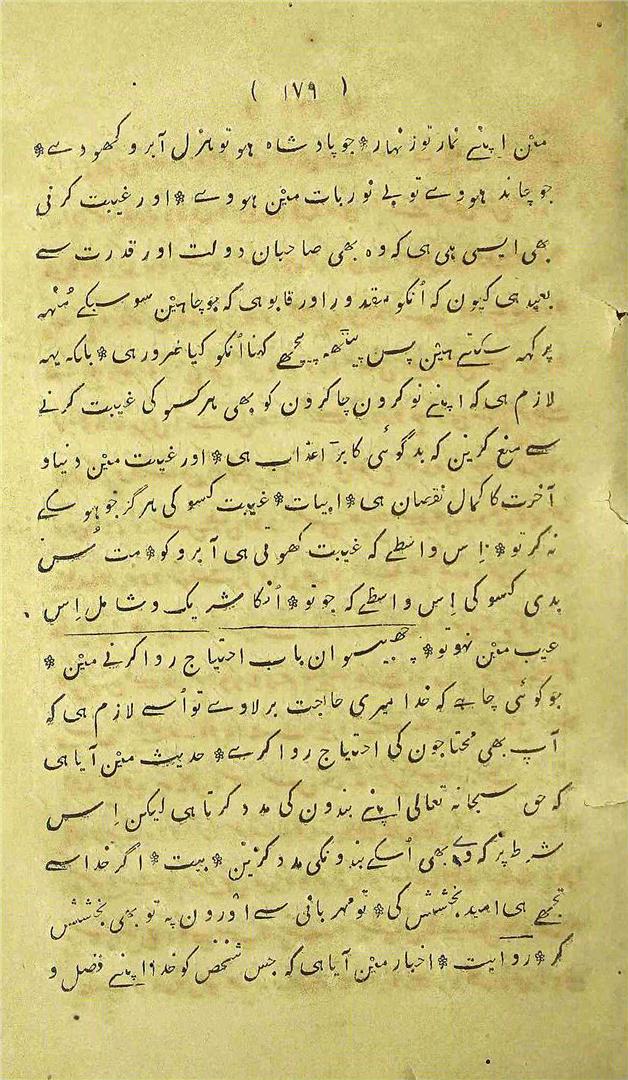 ( ۱۷۹ )
مین اپنے نہار * جو پادشاہ ہو تو ہزل آبرو کھو دے *
جو چاند ہووے تو بے نور بات مین ہووے * اور غیبت کرنی
بھی ایسی ہی ہی کہ وہ بھی صاحبان دولت اور قدرت سے
بعید ہی کیون کہ اُنکو مقدور اور قابو ہی کہ جو چاہین سو سبکے مُنہہ
پر کہہ سکتے ہین پس پیٹھہ پیچھے کہنا اُنکو کیا ضرور ہی * بلکہ یہہ
لازم ہی کہ اپنے نوکرون چاکرون کو بھی ہر کسو کی غیبت کرنے
سے منع کرین کہ بدگوئی کا بڑا عذاب ہی * اور غیبت مین دنیا و
آخرت کا کمال نقصان ہی * ابیات * غیبت کسو کی ہرگز خوہو کے
نہ کر تو * اِس واسطے کہ غیبت کھوتی ہی آبرو کو * مت سُن
بدی کسو کی اِس واسطے کہ جو تو * اُنکا شریک و شامل اِس
عیب مین نہو تو * چھبیسوان باب احتیاج روا کرنے مین *
جو کوئی چاہے کہ خدا میری حاجت بر لاوے تو اُسے لازم ہی کہ
آپ بھی محتاجون کی احتیاج روا کرے * حدیث مین آیا ہی
کہ حق سبحانہ تعالی اپنے بندون کی مدد کرتا ہی لیکن اِس
شرط پر کہ وے بھی اُسکے بندونکی مدد کرین * بیت * اگر خدا سے
تجھے ہی امید بخشش کی * تو مہربانی سے اورون پہ تو بھی بخشش
کر * روایت * اخبار مین آیا ہی کہ جس شخص کو خدا اپنے فضل و